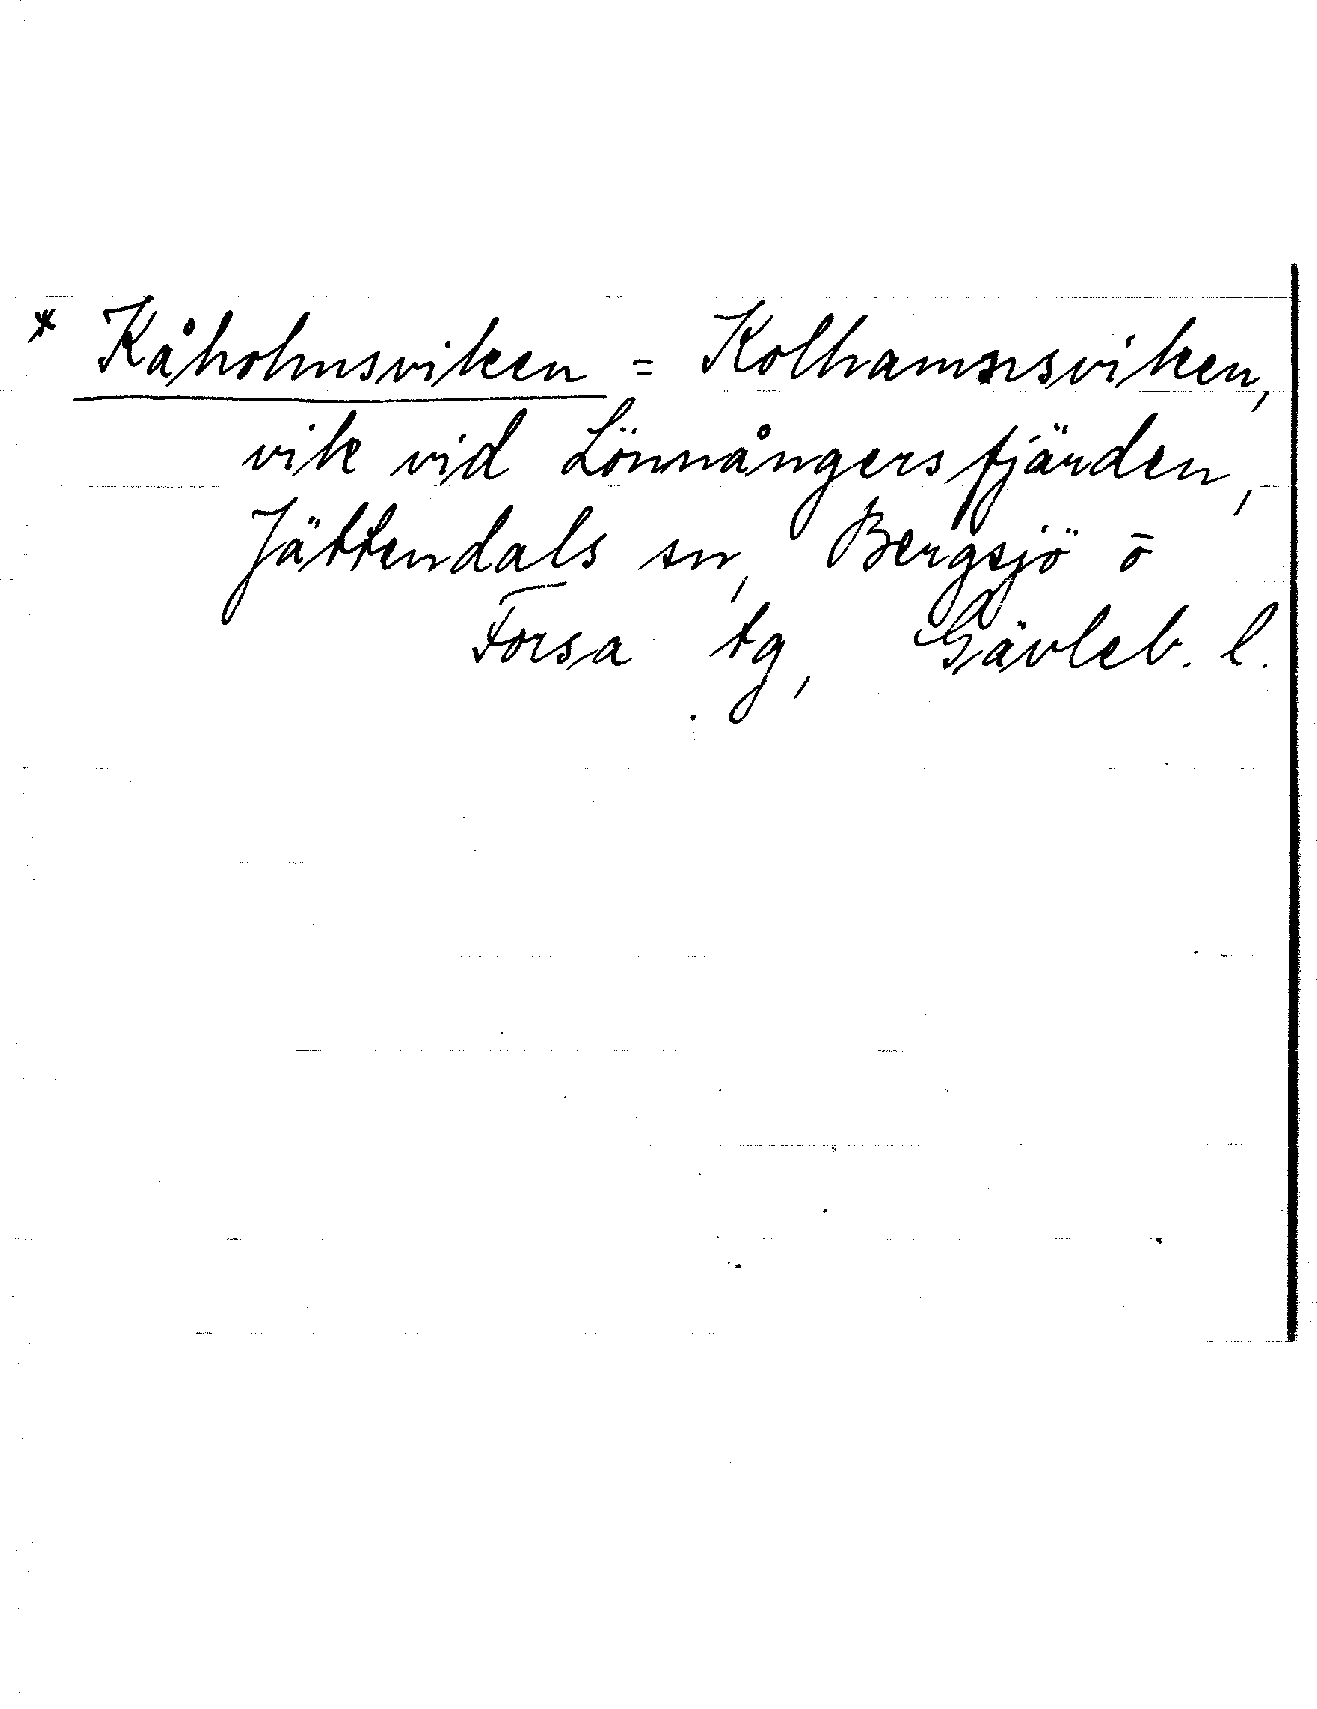 * Kåholmsviken = Kolhamnsviken,
vik vid Lönnångersfjärden,
Jättendals sn, Bergsjö o
Forsa tg, Gävleb. l.